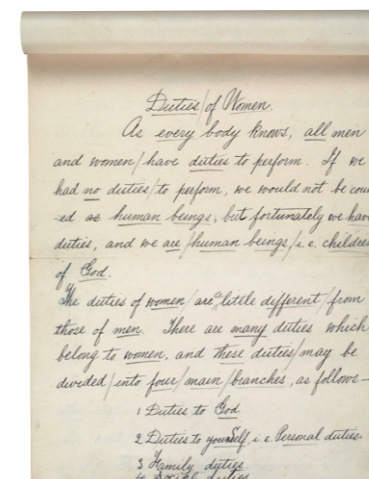 Duties/of Women.
As every body knows, all men
and women/have duties to perform. If we
had no duties/to perform, we would not be coun
-ed as human beings; but fortunately we have
duties, and we are/human beings/i.e. children
of God.
The duties of women/are a little different/from
those of men. There are many duties which
belong to women, and these duties/may be
divided/into four/main/branches, as follows—
1 Duties to God
2 Duties to yourself, i.e. Personal duties.
3 Family duties
4 Social duties